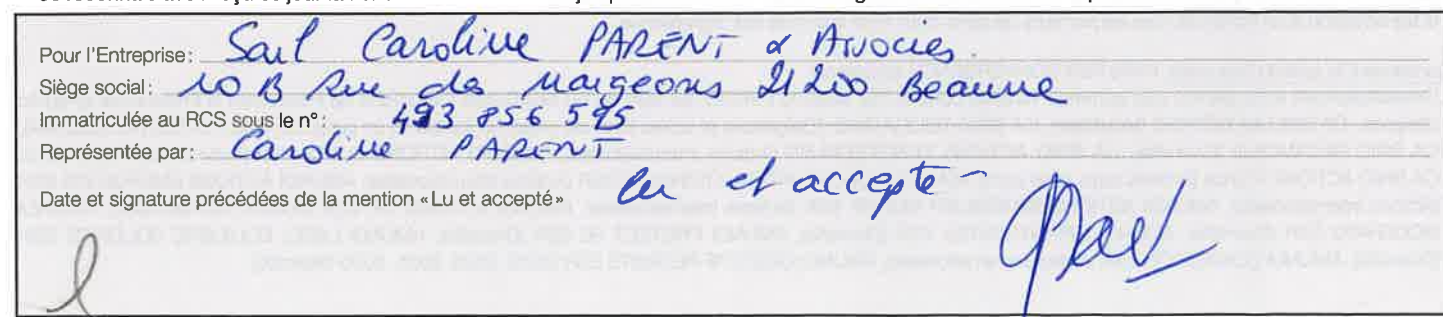 Pour l'Entreprise: Sarl Caroline PARENT & Avocies
Siège social: 10 B Rue des Margeons 21200 Beaune
Immatriculée au RCS sous le n°: 493 856 595
Représentée par: Caroline PARENT
Date et signature précédées de la mention «Lu et accepté» lu et accepte